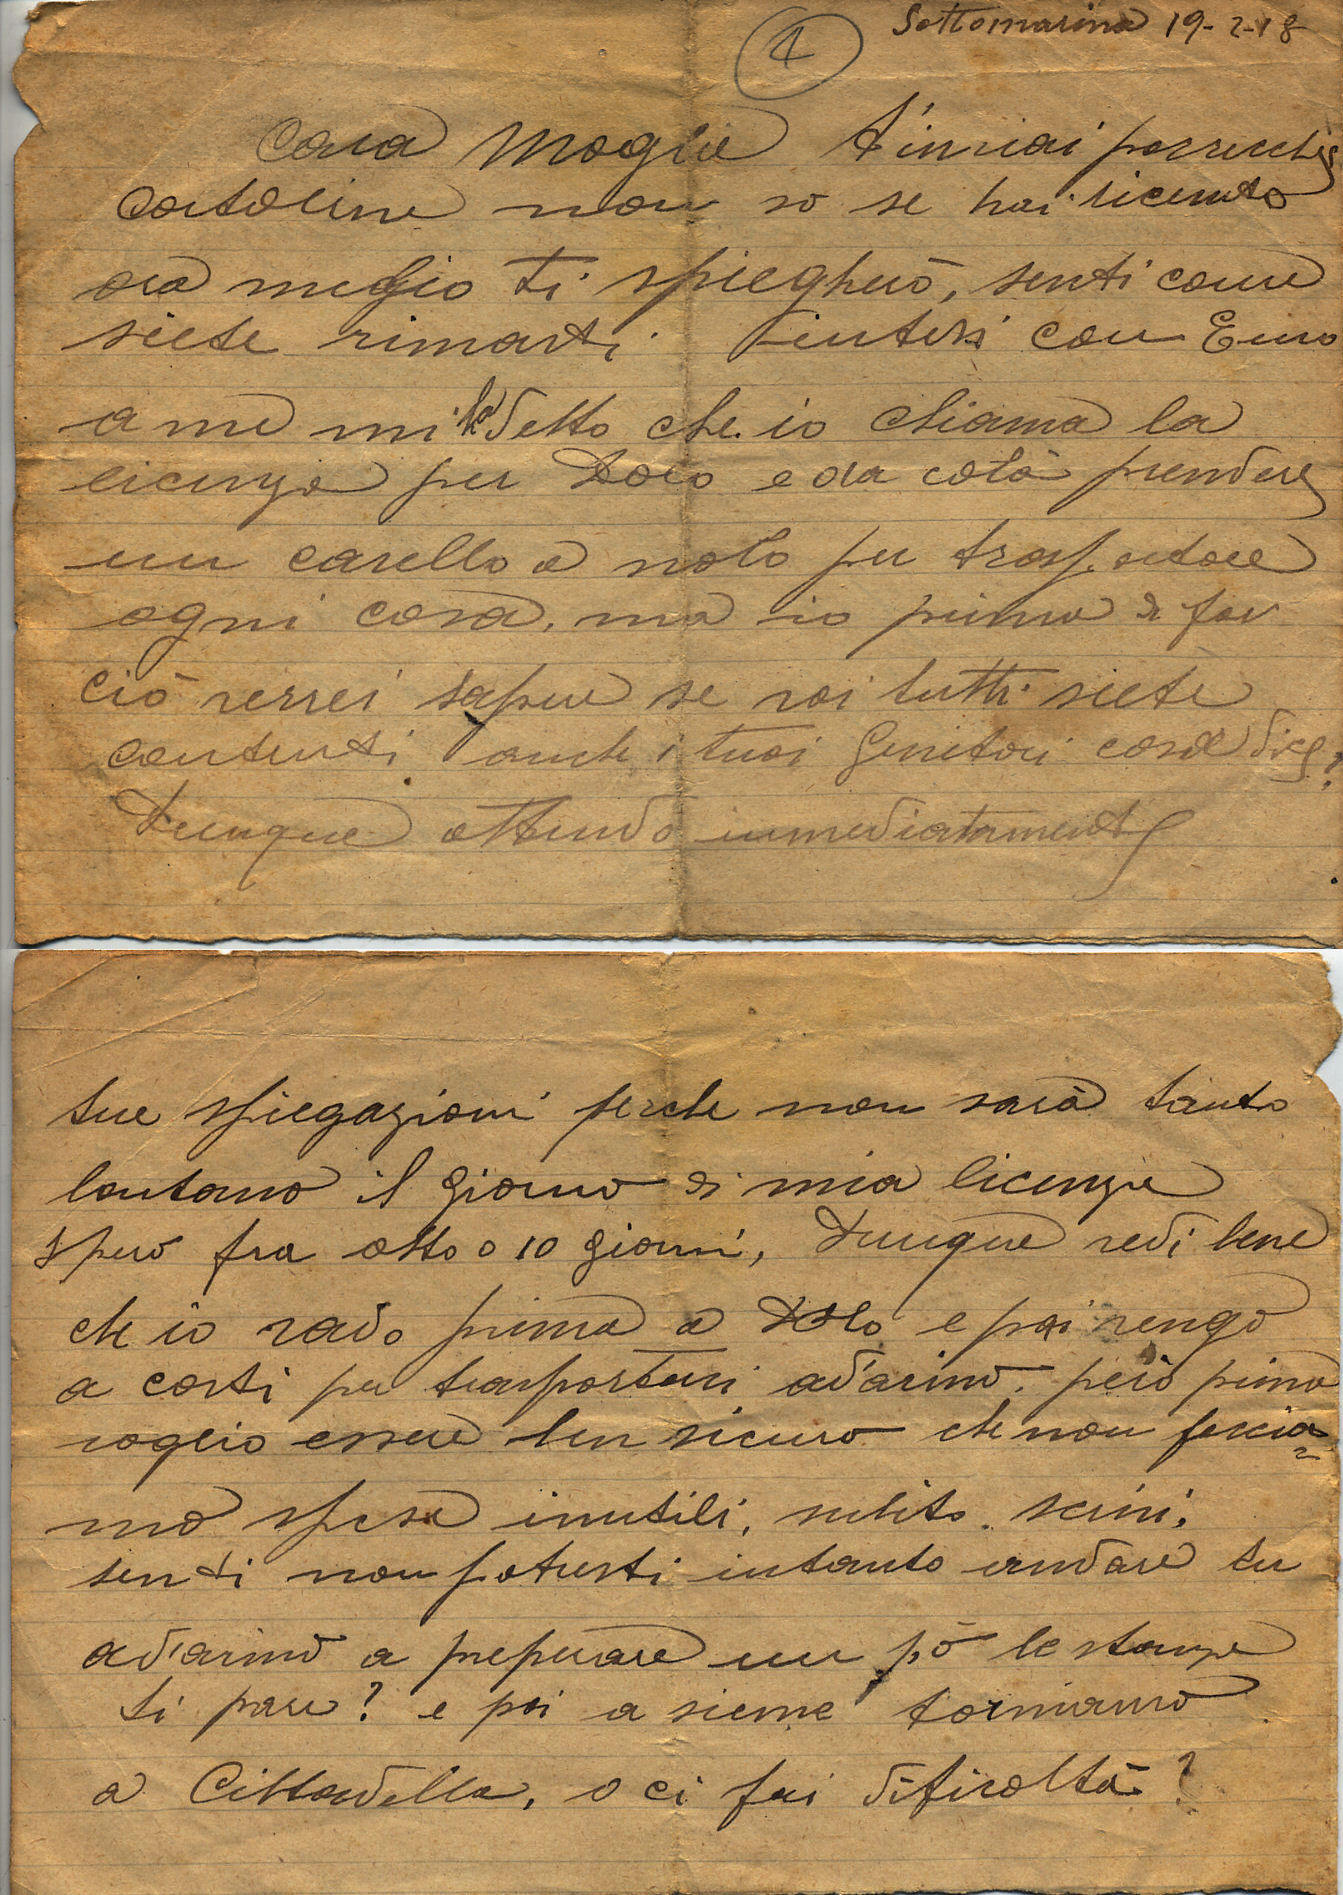 4
Sottomarina 19-2-18
Cara Moglie t'inviai parrecchie
cartoline non so se hai ricevuto
ora meglio ti spiegherò, senti come
siete rimasti intesi con Eno
a me mi ha detto che io chiama la
licenza per Dolo e da colà prendere
un carello a nolo per trasportare
ogni cosa, ma io prima di far
ciò verrei sapere se voi tutti siete
contenti anche i tuoi Genitori cosa dice?
Dunque attendo immediatamente
tue spiegazioni perche non sarà tanto
lontano il giorno di mia licenza
spero fra otto o 10 giorni, Dunque vedi bene
che io vado prima a Dolo e poi vengo
a costi per trasportarci ad'arino. però prima
voglio essere ben sicuro che non faccia=
mo spese inutili, subito scrivi,
senti non potresti intanto andare tu
ad'arino a preperare un pò le stanze
ti pare? e poi a sieme torniamo
a Cittadella, o ci fai dificoltà?